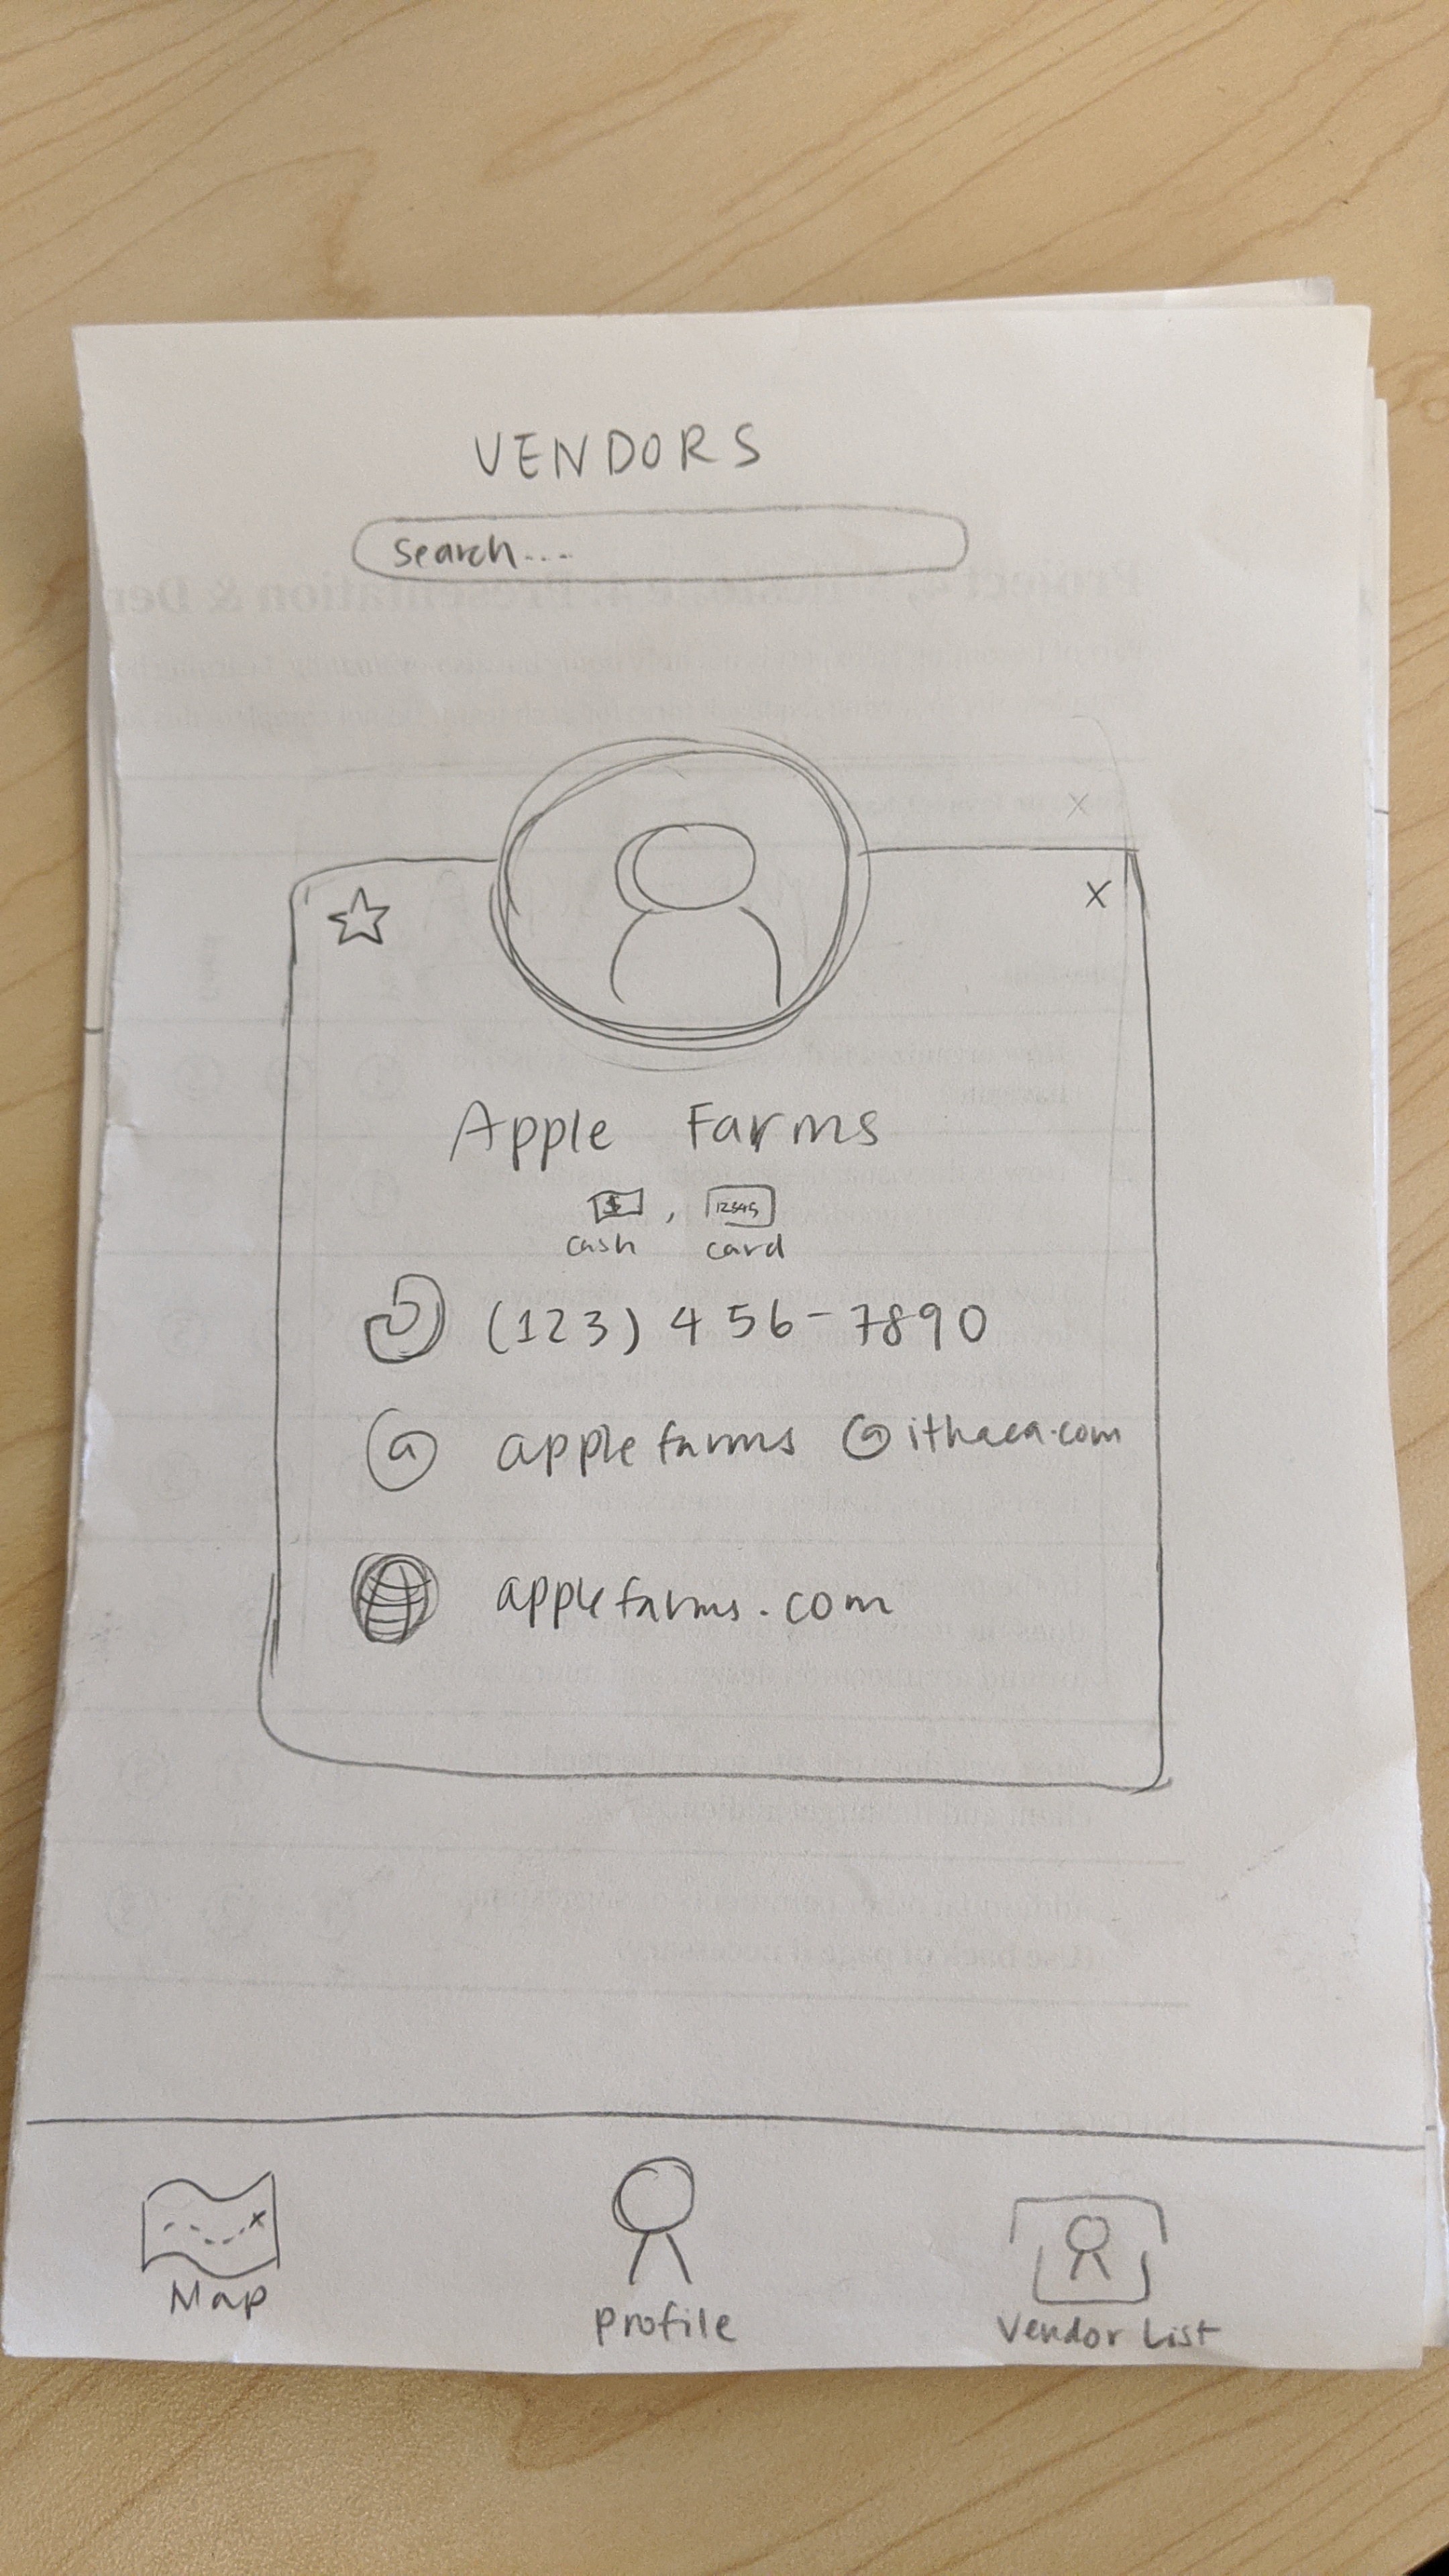 VENDORS
Search....
X
X
Apple Farms
$ , 12345
cash card
(123) 456-7890
@ applefarms @ithaca.com
applefarms.com
X
Map Profile Vendor List